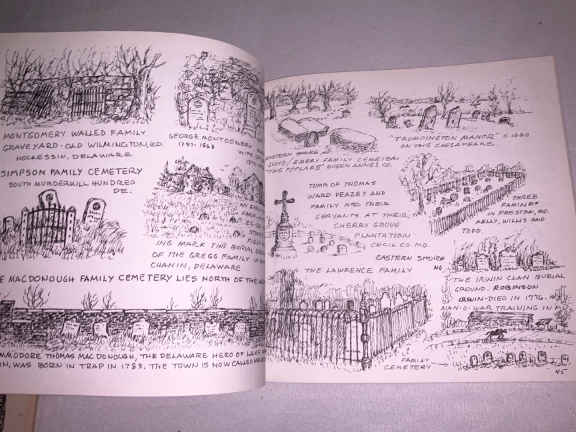 MONTGOMERY WALLED FAMILY
GRAVEYARD-OLD WILMINGTON RD.
HOCKESSIN, DELAWARE
GEORGE MONTGOMERY
SIMPSON FAMILY CEMETERY
SOUTH MURDERKILL HUNDRED
DE.
ING MARK THE BURIAL
OF THE GREGG FAMILY
CHANIN, DELAWARE
MACDONOUGH FAMILY CEMETERY LIES NORTH OF THE
COMMODORE THOMAS MACDONOUGH, THE DELAWARE HERO OF LAKE
WAS BORN IN TRAP IN 1783. THE TOWN IS NOW CALLED
"TRUMPINGTON MANOR" C.1680
ON THE CHESAPEAKE.
EASTERN SHORE
FAMILY CEMETERY
QUEEN ANNE'S CO.
TOMB OF THOMAS
WARD VEAZEY AND
FAMILY AND THEIR
SERVANTS AT THEIR
CHERRY GROVE
PLANTATION
CECIL CO. MD.
THREE
FAMILIES
IN PRESTON, MD.
KELLY, WILLIS AND
TODD
EASTERN SHORE
THE LAWRENCE FAMILY
THE IRWIN CLAN BURIAL
GROUND. ROBINSON
IRWIN-DIED IN 1776.
MAN-O-WAR TRAINING IN
FAMILY
CEMETERY
45